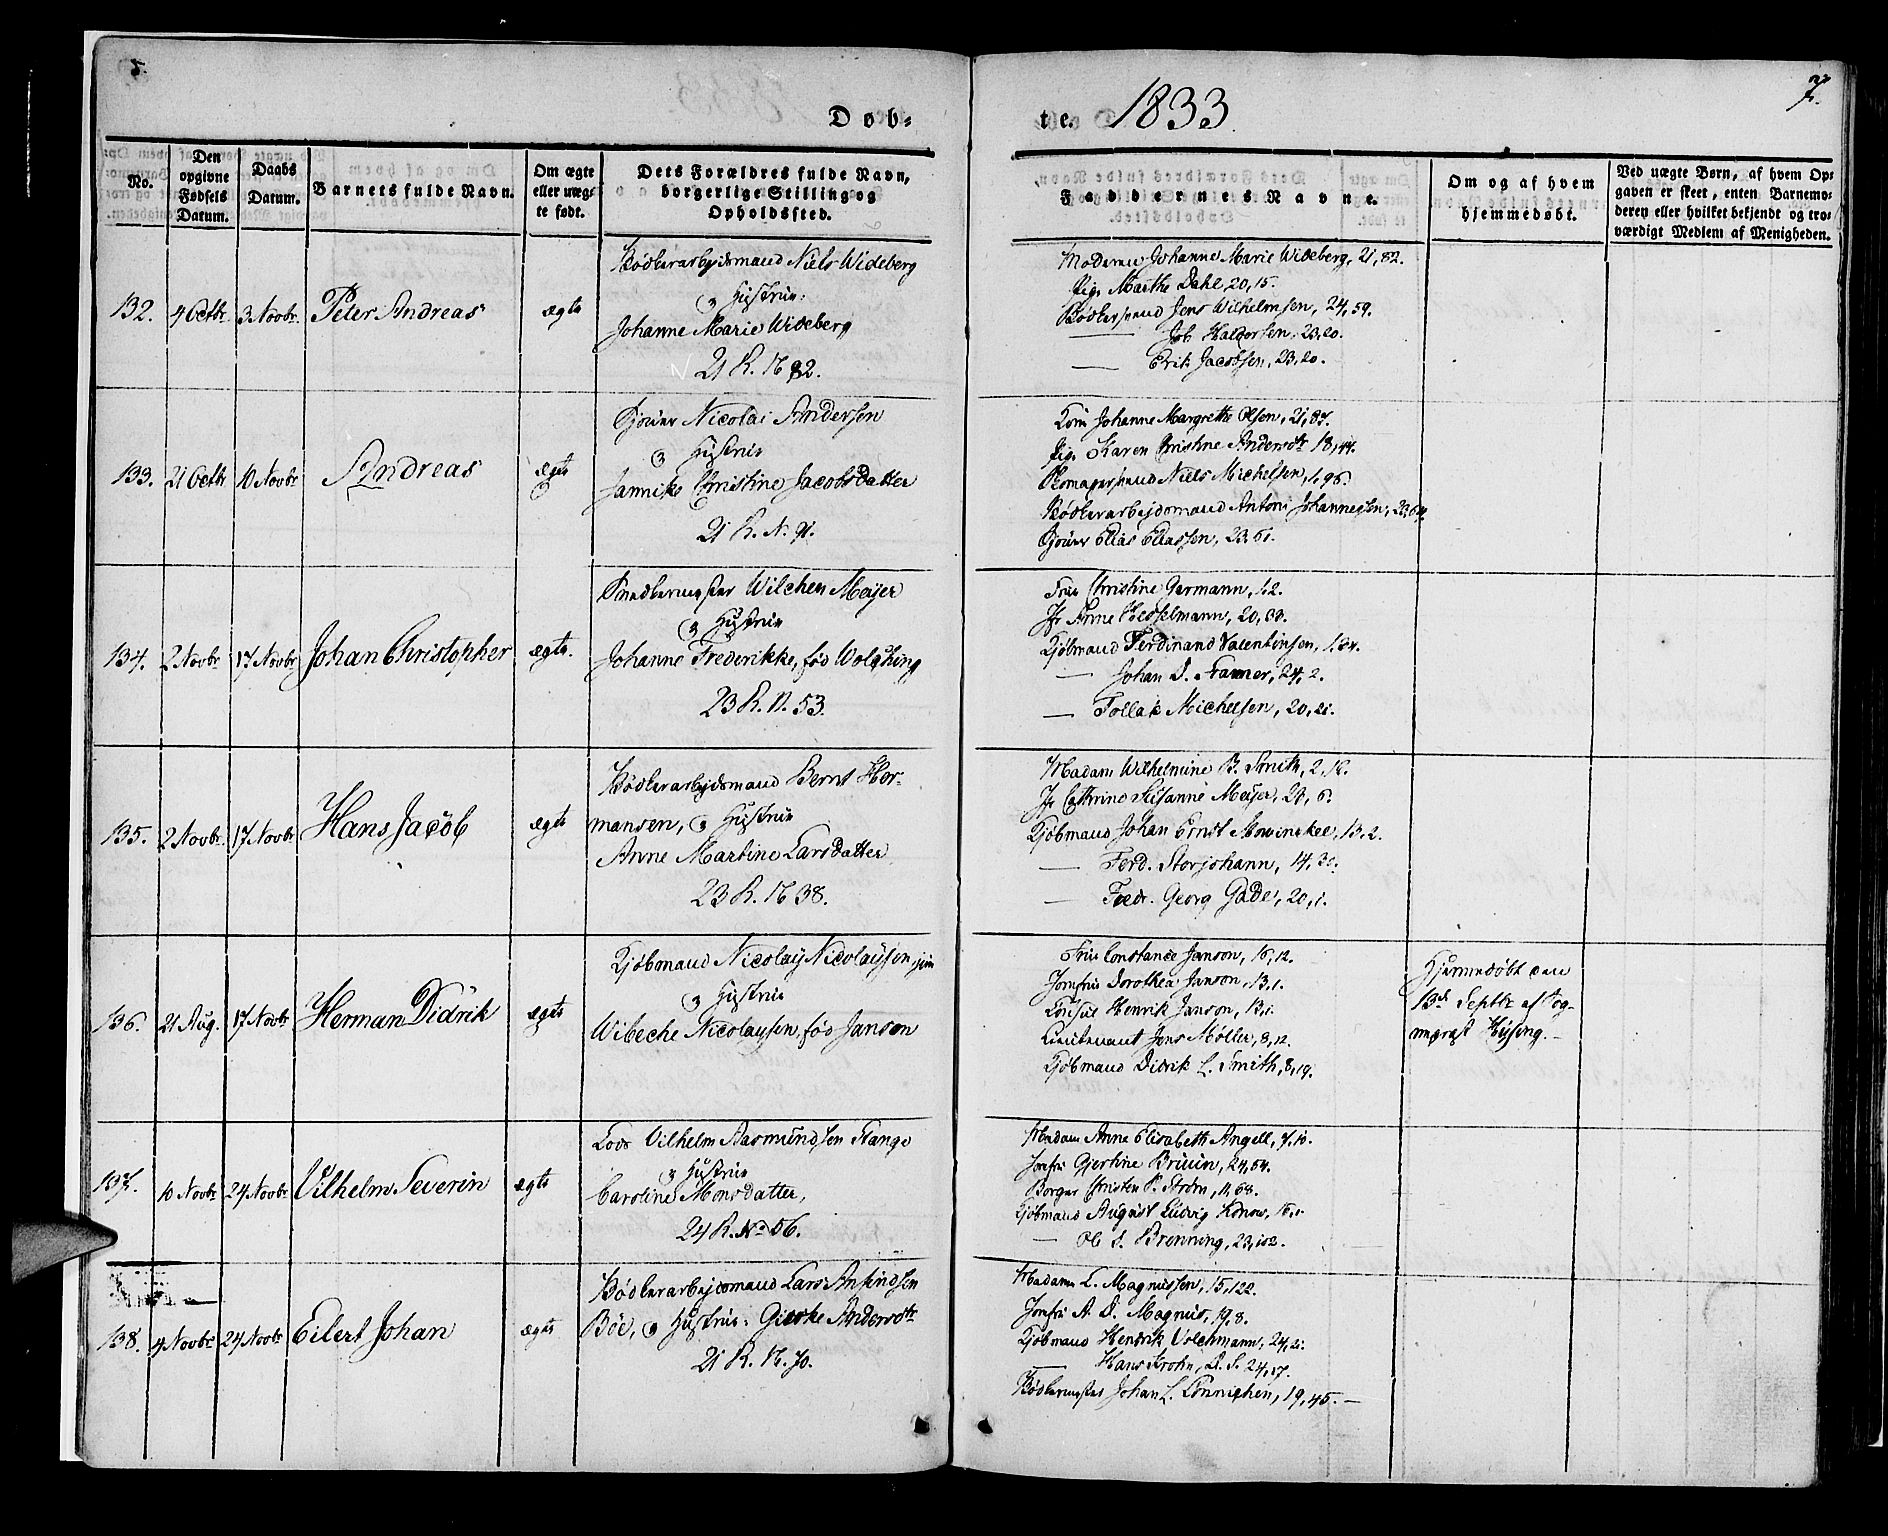 5.
7.
Døb-
te. 1833
No.
Den opgivne Fødsels Datum.
Daabs Datum.
Barnets fulde Navn.
Om ægte eller uæg-
te født.
Dets Forældres fulde Navn,
borgerlige Stilling og
Opholdssted.
Faddernes Navne.
Om og af hvem
hjemmedøbt.
Ved uægte Børn, af hvem Op-
gaven er skeet, enten Barnemo-
deren eller hvilket bekjendt og tro-
værdigt Medlem af Menigheden.
132. 4 Octbr. 3 Novbr. Peter Andreas ægte
Bødkerarbejdsmand Niels Wideberg
og Hustrue:
Johanne Marie Wideberg
21 R. N 82.
Moderen Johanne Marie Wideberg, 21, 82.
Pige Marthe Dahl, 20, 15.
Bødkersvend Jens Wilhelmsen, 24, 59.
— Job Haldorsen, 23, 20.
— Erik Jacobsen, 23, 20.
133. 21 Octbr. 10 Novbr. Andreas ægte
Nicolai Andersen
og Hustrue
Jannike Christine Jacobsdatter
21 R. N. 91.
Johanne Margrethe Olsen, 21, 87.
Pige Karen Christine Andersdtr 18, 44.
Skomagersvend Niels Michelsen, 1, 96.
Bødkerarbejdsmand Antoni Johannessen, 23, 64.
Elias Eliassen, 23, 51.
134. 2 Novbr. 17 Novbr. Johan Christopher ægte.
Wilchen Meijer
og Hustrue
Johanne Frederikke, fød
23 R. N. 53.
Frue Christine Germann, 1, 2.
Jfr Anne Hesselmann, 20, 33.
Kjøbmand Ferdinand Valentinsen,
— Johan D. Framer, 24, 2.
— Tollak Michelsen, 20, 21.
135. 2 Novbr. 17 Novbr. Hans Jacob ægte
Bødkerarbejdsmand Bernt Her-
mansen, og Hustrue
Anne Martine Larsdatter
23 R. N 38.
Madam Wilhelmine B. Smith, 2, 16.
Jfr Cathrine Susanne Meijer, 24, 6.
Kjøbmand Johan Ernst Mowinckel, 13, 2.
— Ferd. Storjohann, 14, 30.
— Fredr. Georg Gade, 20, 1.
136. 21 Aug. 17 Novbr Herman Didrik ægte
Kjøbmand Nicolay Nicolaysen, jun
og Hustrue
Wibeche Nicolaysen, fød Janson
Frue Constance Janson, 16, 12.
Jomfrue Dorothea Janson, 13, 1.
Consul Henrik Janson, 13, 1.
Lieutenant Jens Møller, 8, 12.
Kjøbmand Didrik L. Smith, 8, 19.
Hjemmedøbt den
13de Septbr af Sog-
nepræst Hysing.—
137. 10 Novbr 24 Novbr Vilhelm Severin ægte
Lods Vilhelm Aasmundsen Stange
og Hustrue
Caroline Monsdatter,
24 R. No 56.
Madam Anne Elisabeth Angell, 7, 10.
Jomfru Gjertine Bruun, 24, 54.
Borger Christen P. Strøm, 11, 68.
Kjøbmand August Ludvig Konow, 16, 1.
— Ole S. Brønning, 23, 102.
138. 4 Novbr 24 Novbr Eilert Johan ægte
Bødkerarbejdsmand Lars Anfindsen
Bøe, og Hustrue: Giertke Andersdtr
21 R. N. 70.
Madam L. Magnussen, 15, 122.
Jomfru A. D. Magnus, 19, 8.
Kjøbmand Hendrik Volchmann, 24, 2.
Hans Krohn, D. S. 24, 17.
Bødkermester Johan L. Cønnichen, 19, 45.—